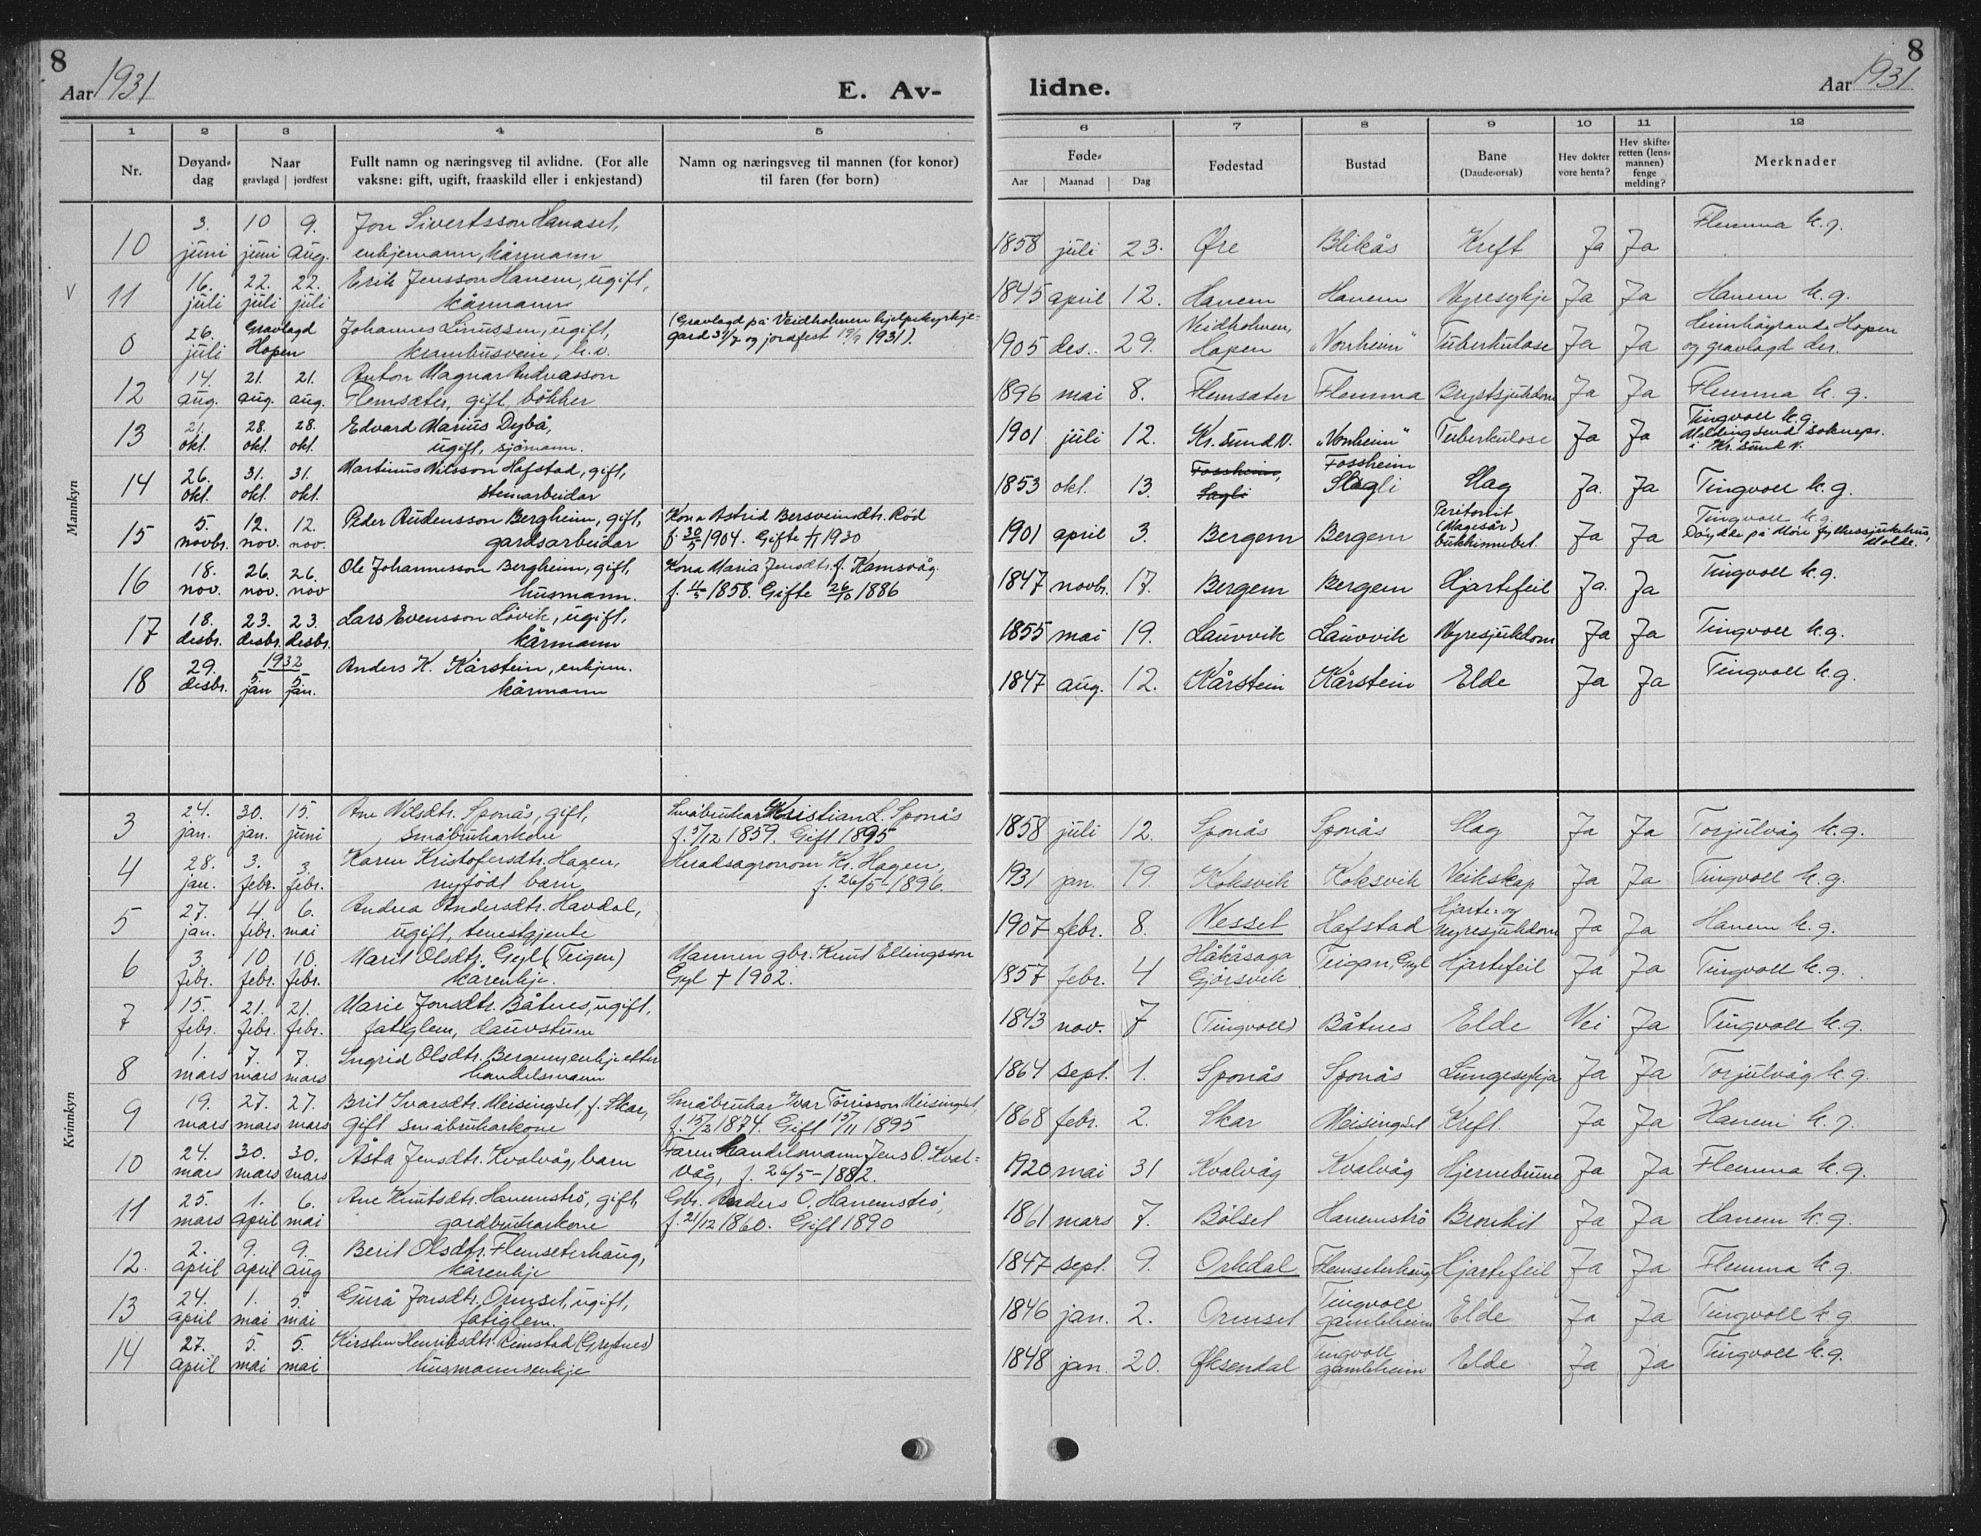 8
Aar 1931
E. Av-
lidne.
Aar 1931
8
1 2 3 4 5 6 7 8 9 10 11 12
Nr.
Døyand-
dag
Naar
gravlagd jordfest
Fullt namn og næringsveg til avlidne. (For alle
vaksne: gift, ugift, fraaskild eller i enkjestand)
Namn og næringsveg til mannen (for konor)
til faren (for born)
Føde-
Aar Maanad Dag
Fødestad
Bustad
Bane
(Daude-orsak)
Hev dokter
vore henta?
Hev skifte-
retten (lens-
mannen)
fenge
melding?
Merknader
Mannkyn
3. 10 9. Jon Sivertsson Hanaset, Flemma k.g.
10 juni juni aug. enkjemann, kårmann 1858 juli 23. Øre Blikås Kreft Ja Ja
V 16. 22. 22. Erik Jensson Hanem, ugift,
11 juli juli juli kårmann 1845 april 12. Hanem Hanem Nyresykje Ja Ja Hanem k.g.
0 26. Gravlagd Johannes Linussen, ugift, (Gravlagd på Veidholmen hjelpekyrkje- Veidholmen, Heimhøyrande Hopen
juli Hopen krambusvein, gard 31/7 og jordfest 19/9 1931). 1905 des. 29. Hopen "Vonheim" Tuberkulose Ja Ja og gravlagd der.
14. 21. 21. Anton Magnar Andreasson
12 aug. aug. aug. Flemsæter, gift, bökker 1896 mai 8. Flemsæter Flemma Brystsjukdom Ja Ja Flemma k.g.
21. 28. 28. Edvard Marius Dybå, Tingvoll k.g.
13 okt. okt. okt. ugift, sjömann. 1901 juli 12. Kr.sund N. "Vonheim" Tuberkulose Ja Ja Melding send soknepr.
i Kr.sund N.
26. 31. 31. Martinus Nilsson Hafstad, gift, Fossheim, Fossheim
14 okt. okt. okt. steinarbeidar 1853 okt. 13. Sagli Slagli Slag Ja. Ja Tingvoll k.g.
5. 12. 12. Peder Audensson Bergheim, gift, Kona Astrid Bersveinsdtr. Rød Peritonit (Magesår) Tingvoll k.g.
15 novbr. nov. nov. gardsarbeidar f. 30/5 1904. Gifte 1930 1901 april 3. Bergem Bergem bukhinnebet. Ja Ja Döydde på Möre fylkessjukehus,
Molde.
18. 26. 26. Ole Johannesson Bergheim, gift, Kona Maria Jensdtr. f. Kamsvåg.
16 nov. nov. nov husmann. f. 1858. Gifte 26/10 1886 1847 novbr. 17. Bergem Bergem Hjartefeil Ja. Ja Tingvoll k.g.
18. 23. 23. Lars Evensson Lövik, ugift,
17 desbr. desbr. desbr. kårmann 1855 mai 19. Lauvvik Lauvvik Nyresjukdom Ja Ja Tingvoll k.g.
29. 1932 Anders K. Kårstein, enkjem.
18 desbr. 5. jan 5. jan. kårmann 1847 aug. 12. Kårstein Kårstein Elde Ja Ja Tingvoll k.g.
Kvinnkyn
24. 30. 15. Ane Nilsdtr. Sponås, gift, Småbrukar Kristian L. Sponås
3 jan. jan. juni småbrukarkone f. 5/12 1859. Gift 1895 1858 juli 12. Sponås Sponås Slag Ja Ja Torjulvåg k.g.
28. 3. 3. Karen Kristofersdtr. Hagen, Heradsagronom Kr. Hagen,
4 jan. febr. febr. nyfödt barn f. 26/5 - 1896. 1931 jan. 19 Koksvik Koksvik Veikskap Ja Ja Tingvoll k.g.
27. 4 6. Andrea Andersdtr. Havdal, Hjarte- og
5 jan. febr. mai ugift, tenestgjente 1907 febr. 8. Nesset Hafstad Nyresjukdom Ja Ja Hanem k.g.
3. 10 10. Marit Olsdtr. Gyl (Teigen) Mannen gbr. Knut Ellingsson Håkåsaga
6 febr. febr. febr. kårenkje. Gyl + 1902. 1857 febr. 4 Gjörsvik Teigan, Gyl Hjartefeil Ja Ja Tingvoll k.g.
15. 21. 21. Marie Jonsdtr. Båtnes, ugift,
7 febr. febr. febr. fatiglem, dauvstum 1843 nov. 7 (Tingvoll) Båtnes Elde Nei Ja Tingvoll k.g.
1. 7. 7. Ingrid Olsdtr. Bergem, enkje etter
8 mars mars mars handelsmann 1864 sept. 1. Sponås Sponås Lungesykja Ja Ja Torjulvåg k.g.
19. 27. 27. Brit Ivarsdtr. Meisingset, f. Skar, Småbrukar Ivar Törrisson Meisingset,
9 mars mars mars gift småbrukarkone f. 15/2 1874. Gift 15/11 1895 1868 febr. 2. Skar Meisingset Kreft. Ja Ja Hanem k.g.
24. 30. 30. Åsta Jensdtr. Kvalvåg, barn Faren handelsmann Jens O. Kval-
10 mars mars mars våg, f. 26/5 - 1882. 1920 mai 31 Kvalvåg Kvalvåg Hjernebetenn Ja Ja Flemma k.g.
25. 1. 6. Ane Knutsdtr. Hanemströ, gift, Gbr. Anders O. Hanemströ,
11 mars april mai gardbrukarkone f. 21/12 1860. Gift 1890 1861 mars 7. Bölset Hanemströ Bronkit Ja Ja Hanem k.g.
2. 9. 9. Berit Olsdtr. Flemseterhaug,
12. april april aug kårenkje 1847 sept. 9. Orkdal Flemseterhaug Hjartefeil Ja Ja Flemma k.g.
24. 1. 5. Gurå Jonsdtr. Ormset, ugift, Tingvoll
13 april mai mai fatiglem. 1846 jan. 2. Ormset gamleheim Elde Ja Ja Tingvoll k.g.
27. 5 5. Kirsten Henriksdtr. Rimstad (Grytnes) Tingvoll
14 april mai mai husmannsenkje 1848 jan. 20. Øksendal gamleheim Elde Ja Ja Tingvoll k.g.